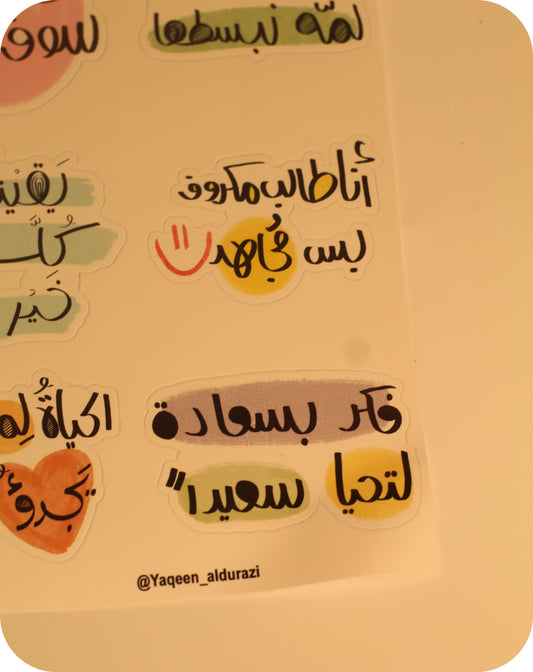 لمّه نبسطها
سوف
أنا طالب مكروف
بس مُجاهد
يَقين
كُلّ
خَير
فكر بسعادة
لتحيا سعيدا"
الحياةُ لِم
يَجرؤ
@Yaqeen_aldurazi